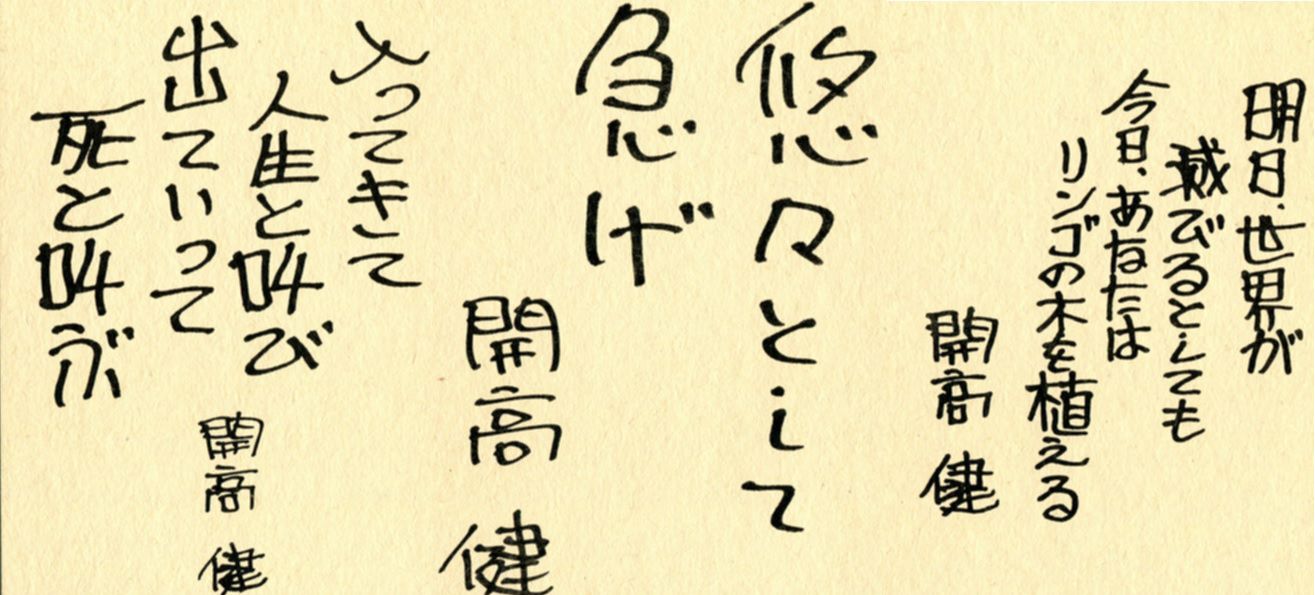 明日、世界が
滅びるとしても
今日、あなたは
リンゴの木を植える
開高 健
悠々として
急げ
開高 健
入ってきて
人生と叫び
出ていって
死と叫ぶ
開高 健